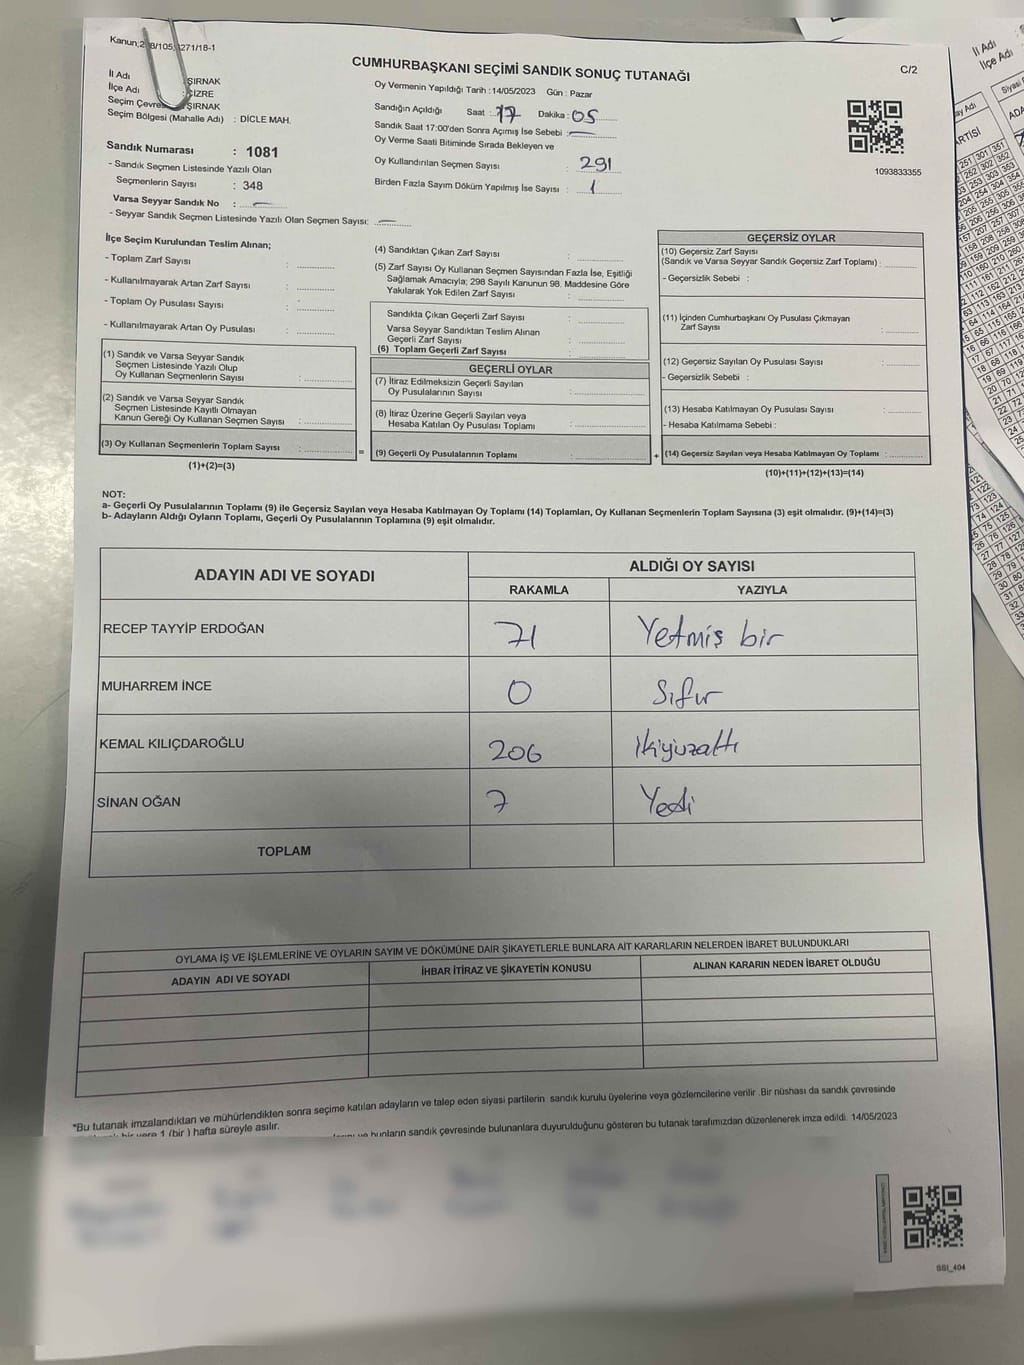 Kanun;2 8/105, 271/18-1
CUMHURBAŞKANI SEÇİMİ SANDIK SONUÇ TUTANAĞI
C/2
İl Adı : ŞIRNAK
İlçe Adı : CİZRE
Seçim Çevresi : ŞIRNAK
Seçim Bölgesi (Mahalle Adı) : DİCLE MAH.
Oy Vermenin Yapıldığı Tarih :14/05/2023 Gün : Pazar
Sandığın Açıldığı Saat : 17 Dakika : 05
Sandık Saat 17:00'den Sonra Açımış İse Sebebi :
Oy Verme Saati Bitiminde Sırada Bekleyen ve
Oy Kullandırılan Seçmen Sayısı : 291
Birden Fazla Sayım Döküm Yapılmış İse Sayısı : 1
1093833355
Sandık Numarası : 1081
- Sandık Seçmen Listesinde Yazılı Olan
Seçmenlerin Sayısı : 348
Varsa Seyyar Sandık No : —
- Seyyar Sandık Seçmen Listesinde Yazılı Olan Seçmen Sayısı: —
İlçe Seçim Kurulundan Teslim Alınan;
- Toplam Zarf Sayısı :
- Kullanılmayarak Artan Zarf Sayısı :
- Toplam Oy Pusulası Sayısı :
- Kullanılmayarak Artan Oy Pusulası :
(1) Sandık ve Varsa Seyyar Sandık
Seçmen Listesinde Yazılı Olup
Oy Kullanan Seçmenlerin Sayısı :
(2) Sandık ve Varsa Seyyar Sandık
Seçmen Listesinde Kayıtlı Olmayan
Kanun Gereği Oy Kullanan Seçmen Sayısı :
(3) Oy Kullanan Seçmenlerin Toplam Sayısı :
(1)+(2)=(3)
(4) Sandıktan Çıkan Zarf Sayısı :
(5) Zarf Sayısı Oy Kullanan Seçmen Sayısından Fazla İse, Eşitliği
Sağlamak Amacıyla; 298 Sayılı Kanunun 98. Maddesine Göre
Yakılarak Yok Edilen Zarf Sayısı :
Sandıkta Çıkan Geçerli Zarf Sayısı :
Varsa Seyyar Sandıktan Teslim Alınan
Geçerli Zarf Sayısı :
(6) Toplam Geçerli Zarf Sayısı :
GEÇERLİ OYLAR
(7) İtiraz Edilmeksizin Geçerli Sayılan
Oy Pusulalarının Sayısı :
(8) İtiraz Üzerine Geçerli Sayılan veya
Hesaba Katılan Oy Pusulası Toplamı :
= (9) Geçerli Oy Pusulalarının Toplamı :
GEÇERSİZ OYLAR
(10) Geçersiz Zarf Sayısı
(Sandık ve Varsa Seyyar Sandık Geçersiz Zarf Toplamı) :
- Geçersizlik Sebebi :
(11) İçinden Cumhurbaşkanı Oy Pusulası Çıkmayan
Zarf Sayısı :
(12) Geçersiz Sayılan Oy Pusulası Sayısı :
- Geçersizlik Sebebi :
(13) Hesaba Katılmayan Oy Pusulası Sayısı :
- Hesaba Katılmama Sebebi :
+ (14) Geçersiz Sayılan veya Hesaba Katılmayan Oy Toplamı :
(10)+(11)+(12)+(13)=(14)
NOT:
a- Geçerli Oy Pusulalarının Toplamı (9) ile Geçersiz Sayılan veya Hesaba Katılmayan Oy Toplamı (14) Toplamları, Oy Kullanan Seçmenlerin Toplam Sayısına (3) eşit olmalıdır. (9)+(14)=(3)
b- Adayların Aldığı Oyların Toplamı, Geçerli Oy Pusulalarının Toplamına (9) eşit olmalıdır.
ADAYIN ADI VE SOYADI
ALDIĞI OY SAYISI
RAKAMLA YAZIYLA
RECEP TAYYİP ERDOĞAN 71 Yetmiş bir
MUHARREM İNCE 0 Sıfır
KEMAL KILIÇDAROĞLU 206 ikiyüzaltı
SİNAN OĞAN 7 Yedi
TOPLAM
OYLAMA İŞ VE İŞLEMLERİNE VE OYLARIN SAYIM VE DÖKÜMÜNE DAİR ŞİKAYETLERLE BUNLARA AİT KARARLARIN NELERDEN İBARET BULUNDUKLARI
ADAYIN ADI VE SOYADI İHBAR İTİRAZ VE ŞİKAYETİN KONUSU ALINAN KARARIN NEDEN İBARET OLDUĞU
*Bu tutanak imzalandıktan ve mühürlendikten sonra seçime katılan adayların ve talep eden siyasi partilerin sandık kurulu üyelerine veya gözlemcilerine verilir .Bir nüshası da sandık çevresinde
bir yere 1 (bir ) hafta süreyle asılır.
ve bunların sandık çevresinde bulunanlara duyurulduğunu gösteren bu tutanak tarafımızdan düzenlenerek imza edildi. 14/05/2023
SSI_404
İl Adı
İlçe Adı